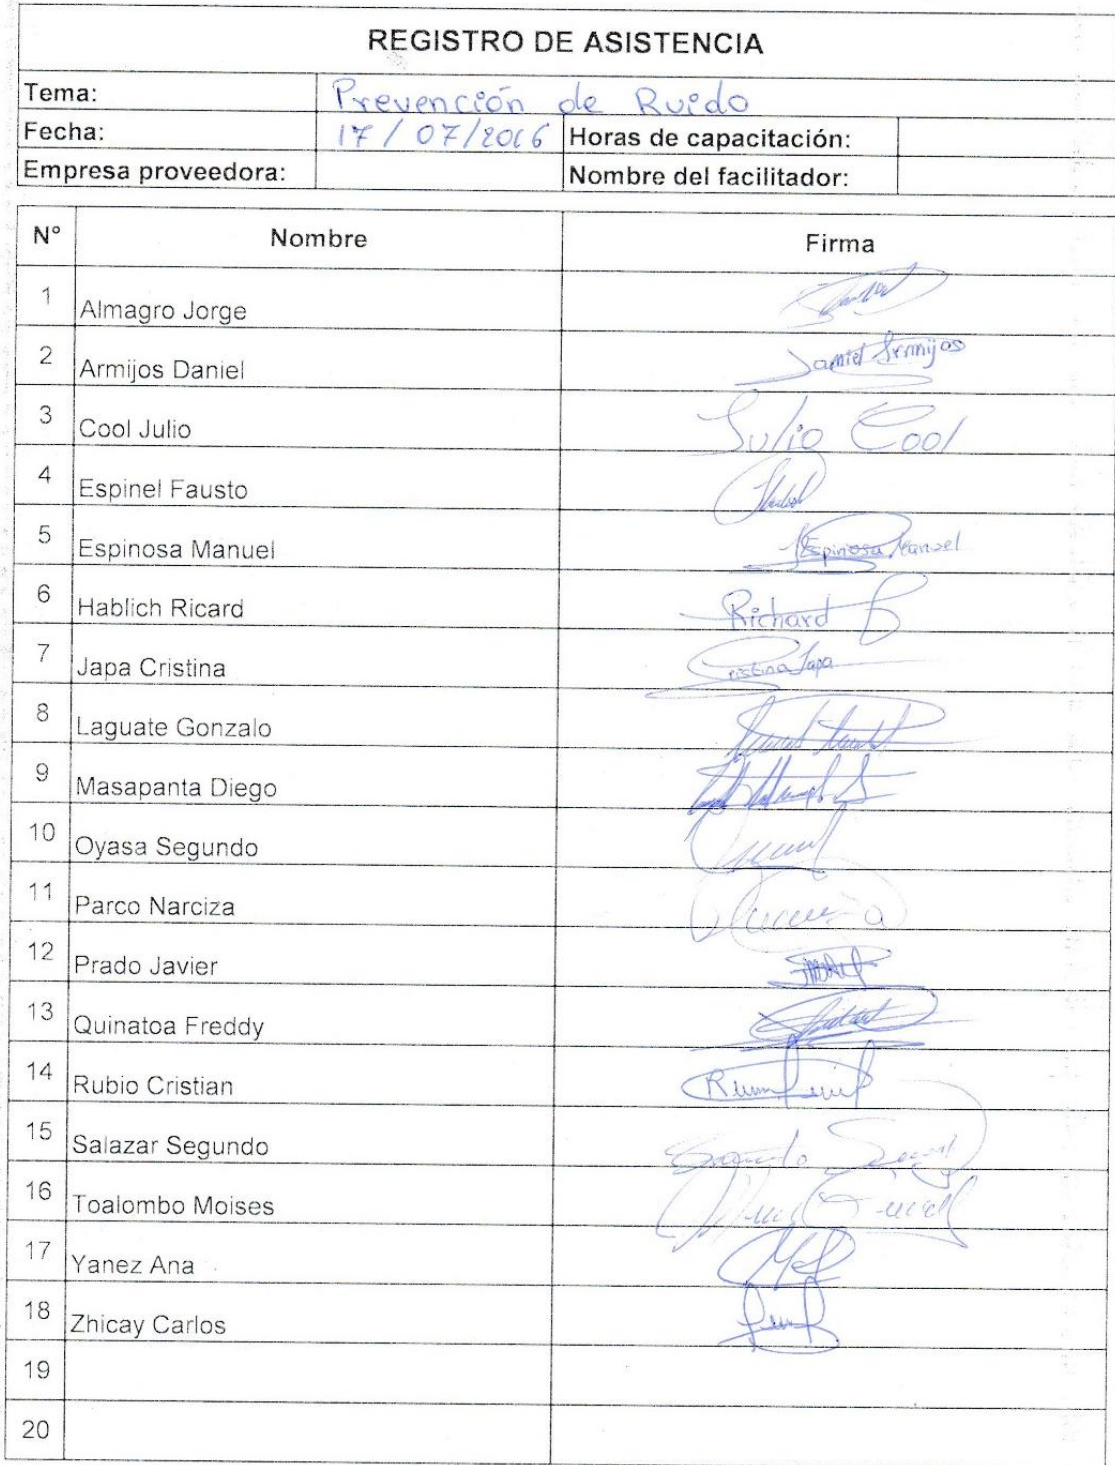 REGISTRO DE ASISTENCIA
Tema: Prevención de Ruido
Fecha: 17/07/2016 Horas de capacitación:
Empresa proveedora: Nombre del facilitador:
N° Nombre Firma
1 Almagro Jorge
2 Armijos Daniel Daniel Armijos
3 Cool Julio Julio Cool
4 Espinel Fausto
5 Espinosa Manuel Espinosa Manuel
6 Hablich Ricard Richard
7 Japa Cristina Cristina Japa
8 Laguate Gonzalo
9 Masapanta Diego
10 Oyasa Segundo
11 Parco Narciza
12 Prado Javier
13 Quinatoa Freddy
14 Rubio Cristian
15 Salazar Segundo
16 Toalombo Moises
17 Yanez Ana
18 Zhicay Carlos
19
20